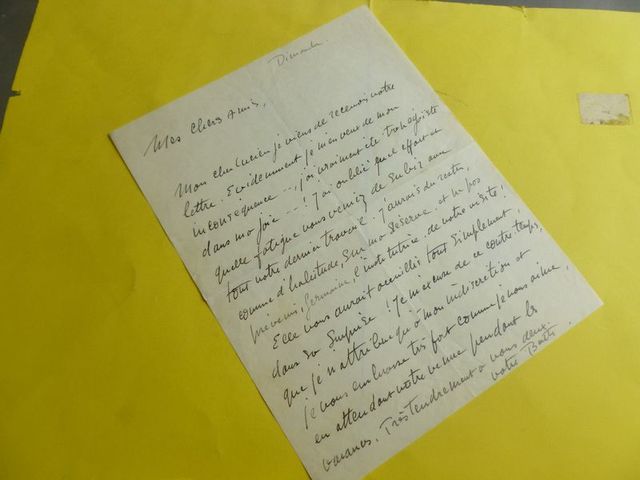 Dimanche.
Mes chers Amis,
Mon cher Lucien je viens de recevoir votre
lettre. Evidemment je m'en veux de mon
inconséquence --, j'ai vraiment été trop égoïste
dans ma joie -- ! J'ai oublié quel effort et
quelle fatigue vous veniez de subir avec
tout votre dernier travail. J'aurais du rester,
comme d'habitude, sur ma réserve et ne pas
prévenir, Germaine, l'institutrice, de votre visite !
Elle vous aurait accueillis tout simplement,
dans sa surprise ! Je m'excuse de ce contre temps,
que je n'attribue qu'à mon indiscrétion et
je vous embrasse très fort comme je vous aime,
en attendant votre venue pendant les
vacances. Très Tendrement à vous deux.
votre